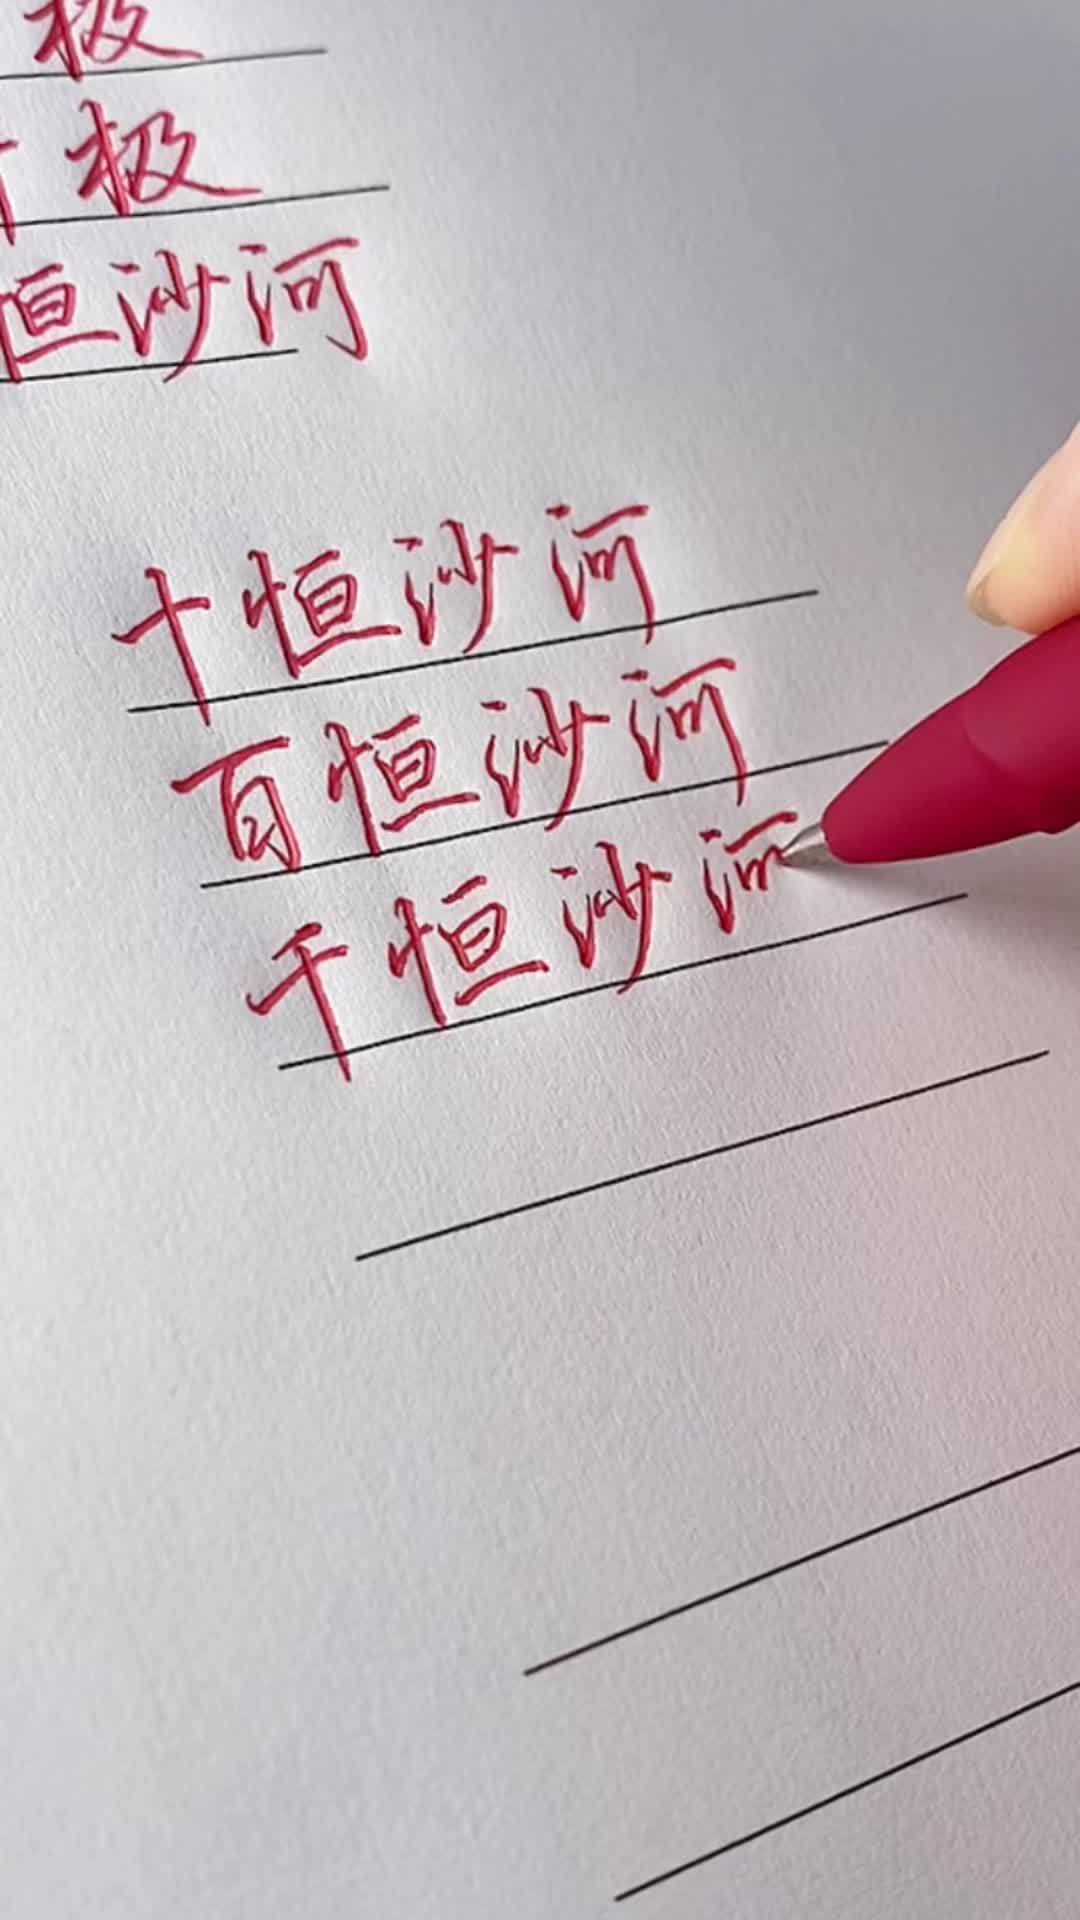 极
极
恒沙河
十恒沙河
百恒沙河
千恒沙河